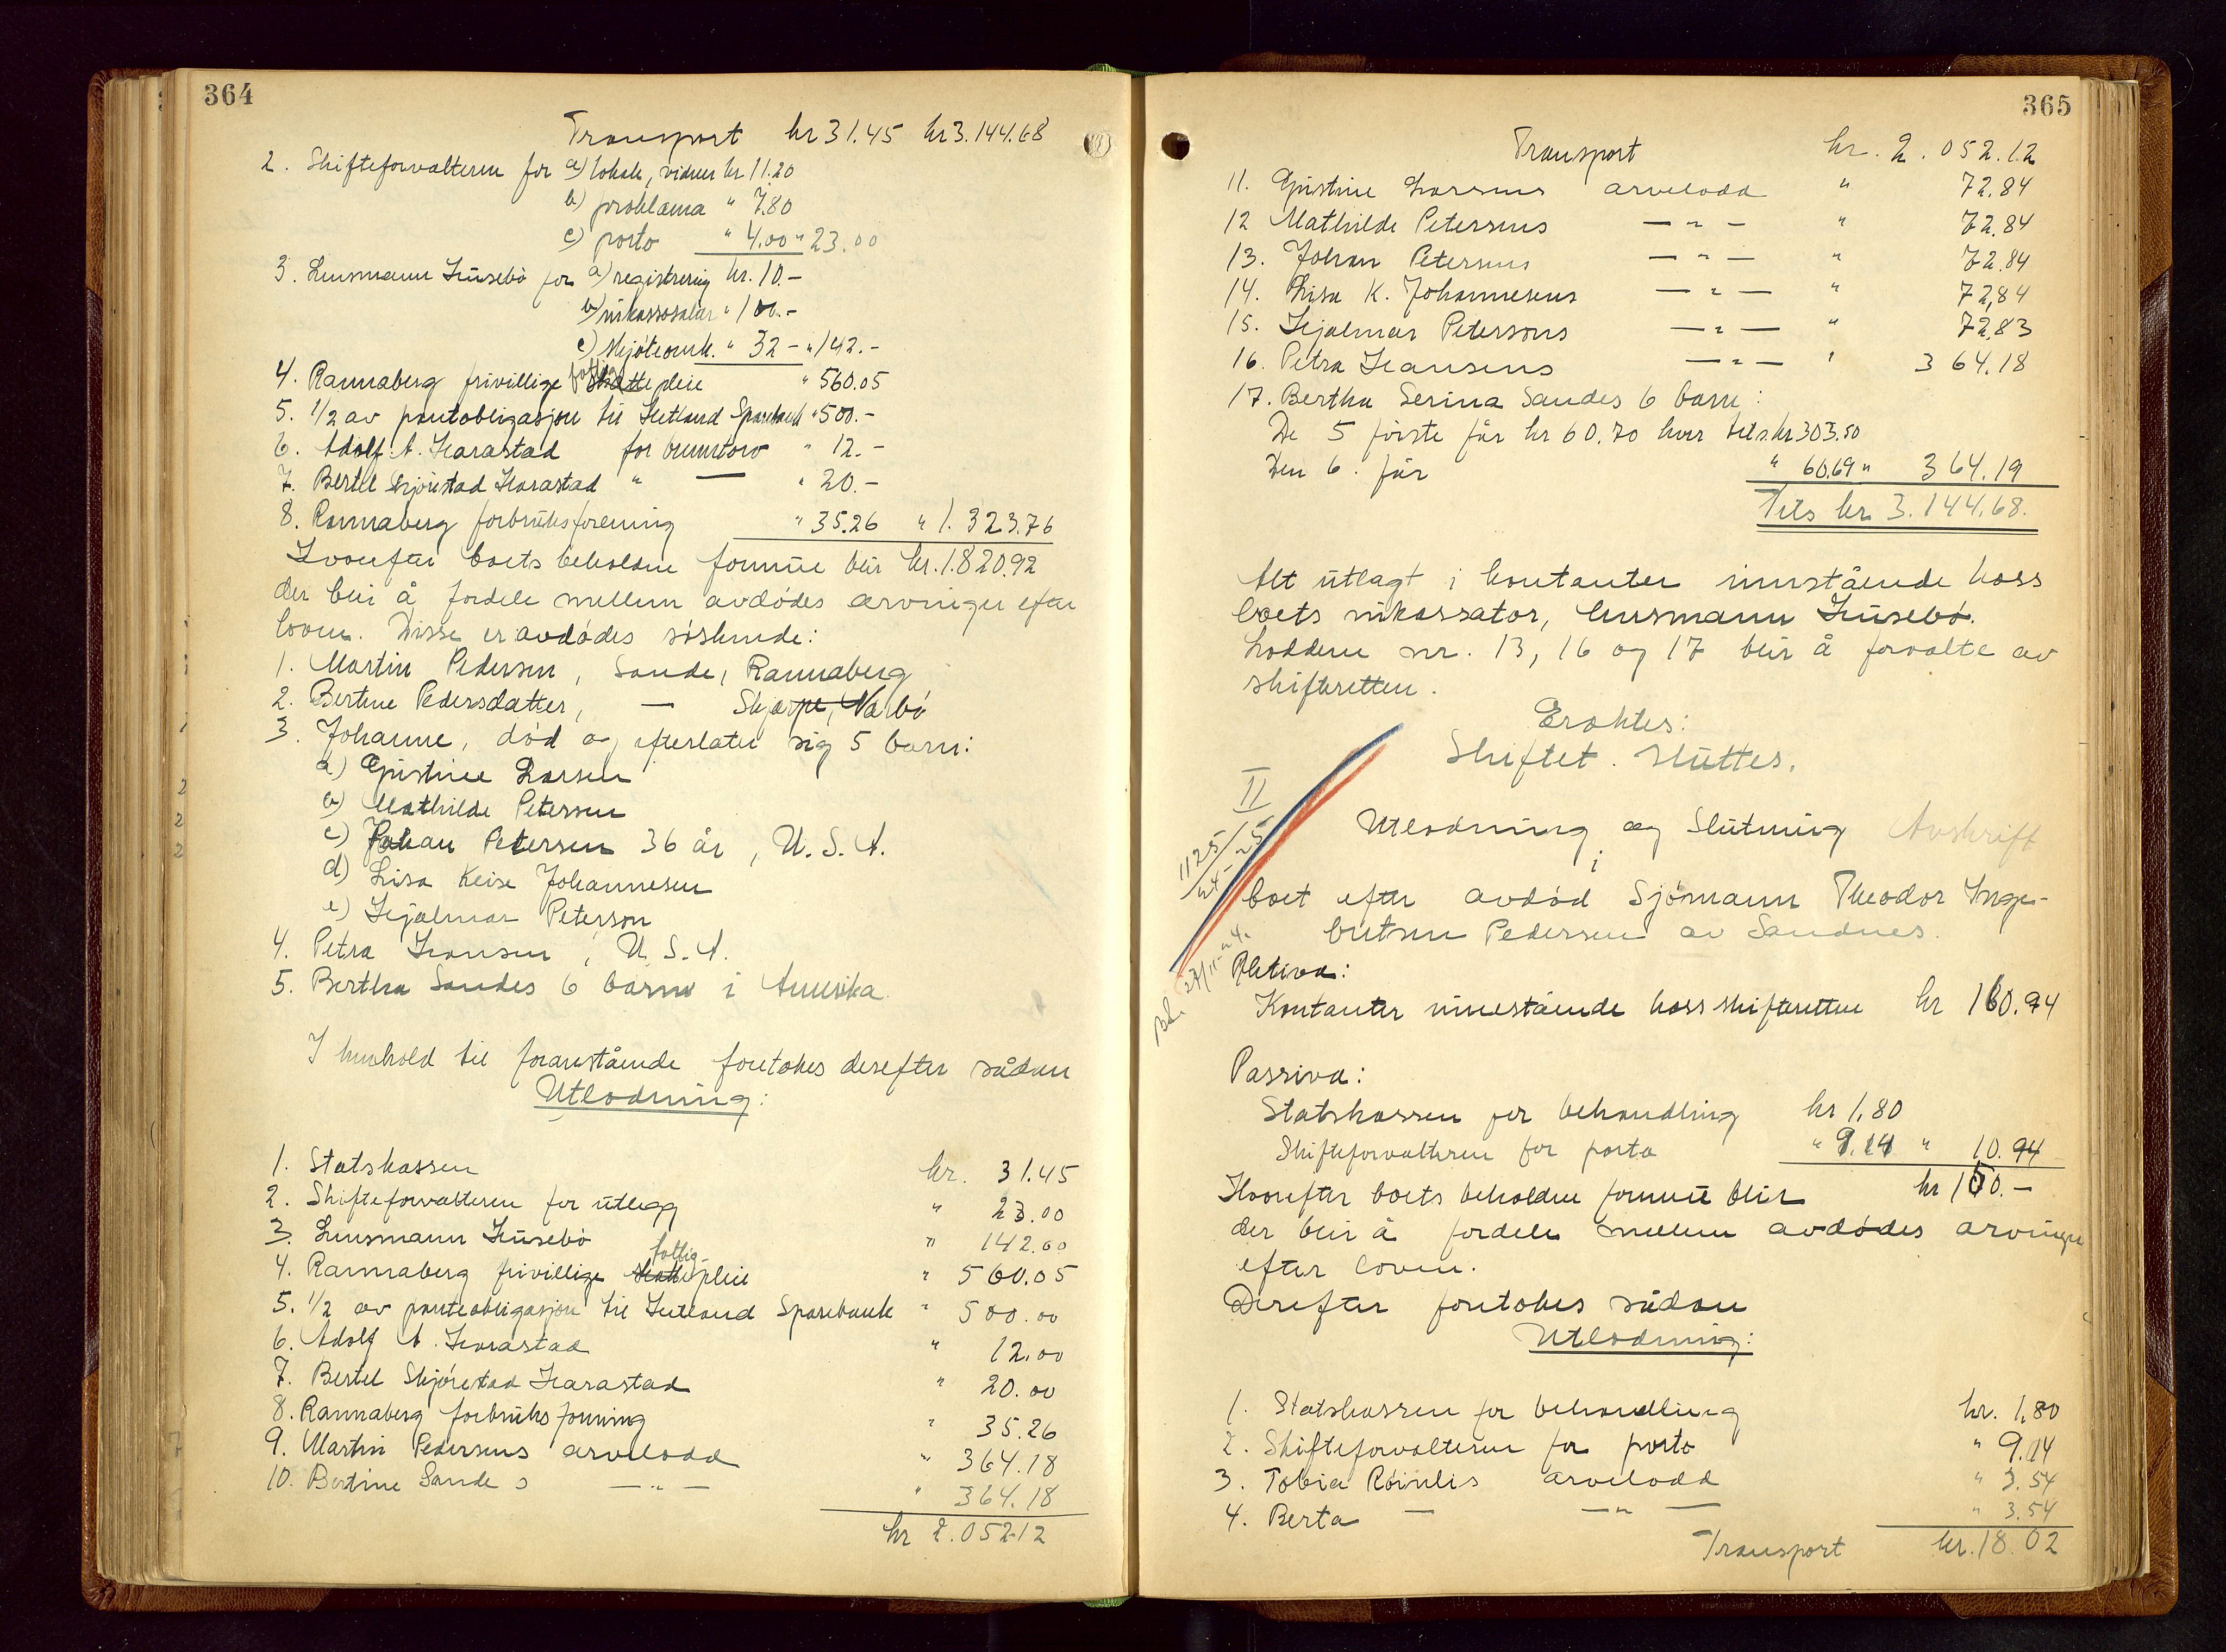 364
Transport kr 31.45 kr 3.144.68
2. Skifteforvalteren for a) lokale, vidner kr 11.20
b) proklama " 7.80
c) porto " 4.00 " 23.00
3. Lensmann Husebø for a) registrering kr. 10.-
b) inkassosalær " 100.-
c) skjøteomk. " 32 - " 142.-
4. Rannaberg frivillige fattigpleie " 560.05
5. 1/2 av pantobligasjon til Hetland Sparebank " 500.-
6. Adolf A. Harastad for brenntorv " 12.-
7. Bertel Skjørestad Harastad " — " 20.-
8. Rannaberg forbruksforening " 35.26 " 1.323.76
Hvorefter boets beholdne formue blir kr. 1.820.92
der blir å fordele mellem avdødes arvinger efter
loven. Disse er avdødes søskende:
1. Martin Pedersen, Sande, Rannaberg
2. Bertine Pedersdatter, — Skjørpe, Varbø
3. Johanne, død og efterlater sig 5 barn:
a) Gjristine Larsen
b) Mathilde Petersen
c) Johan Petersen 36 år, U.S.A.
d) Lisa Keise Johannesen
e) Hjalmar Peterson
4. Petra Hansen, U.S.A.
5. Bertha Sandes 6 barn i Amerika.
I henhold til foranstående foretokes derefter sådan
Utlodning:
1. Statskassen kr. 31.45
2. Skifteforvalteren for utlegg " 23.00
3. Lensmann Husebø " 142.00
4. Rannaberg frivillige fattigpleie " 560.05
5. 1/2 av panteobligasjon til Hetland Sparebank " 500.00
6. Adolf A. Harastad " 12.00
7. Bertel Skjørestad Harastad " 20.00
8. Rannaberg forbruksforening " 35.26
9. Martin Pedersens arvelodd " 364.18
10. Bertine Sandes — " — " 364.18
kr 2.052.12
365
Transport kr. 2.052.12
11. Gjristine Larsens arvelodd " 72.84
12 Mathilde Petersens — " — " 72.84
13. Johan Petersens — " — " 72.84
14. Lisa K. Johannesens — " — " 72,84
15. Hjalmar Petersons — " — " 72,83
16. Petra Hansens — " — " 364.18
17. Bertha Serina Sandes 6 barn:
De 5 første får kr 60.70 hver tils. kr 303.50
Den 6. får " 60.69 " 364.19
Tils kr 3.144.68.
Alt utlagt i kontanter innstående hoss
boets inkassator, lensmann Husebø.
Loddene nr. 13, 16 og 17 blir å forvalte av
skifteretten.
Eraktes:
Skiftet sluttes.
II
1125/25
Utlodning og Slutning Avskrift
i
boet efter avdød Sjømann Theodor Inge-
bretsen Pedersen av Sandnes.
Aktiva:
Kontanter innestående hoss skifteretten kr 160.94
Passiva:
Statskassen for behandling kr 1.80
Skifteforvalteren for porto " 9.14 " 10.94
Hvorefter boets beholdne formue blir kr 150.-
der blir å fordele mellem avdødes arvinger
efter loven.
Derefter foretokes sådan
Utlodning:
1. Statskassen for behandling kr. 1,80
2. Skifteforvalteren for porto " 9.14
3. Tobia Røinlis arvelodd " 3.54
4. Berta — — " — " 3.54
Transport kr. 18.02